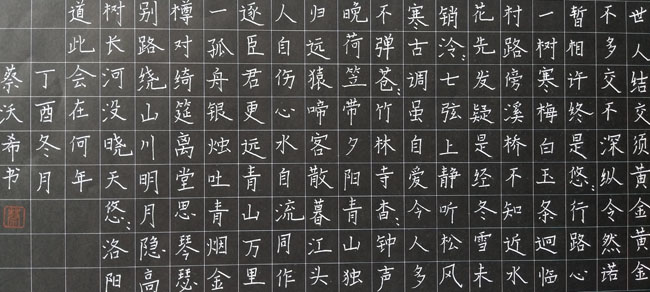 世人结交须黄金黄金
不多交不深纵令然诺
暂相许终是悠：行路心
一树寒梅白玉条迥临
村路傍溪桥不知近水
花先发疑是经冬雪未
销泠：七弦上静听松风
寒古调虽自爱今人多
不弹苍：竹林寺杳：钟声
晚荷笠带夕阳青山独
归远猿啼客散暮江头
人自伤心水自流同作
逐臣君更远青山万里
一孤舟银烛吐青烟金
樽对绮筵离堂思琴瑟
别路绕山川明月隐高
树长河没晓天悠：洛阳
道此会在何年
丁酉冬月
蔡沃希书